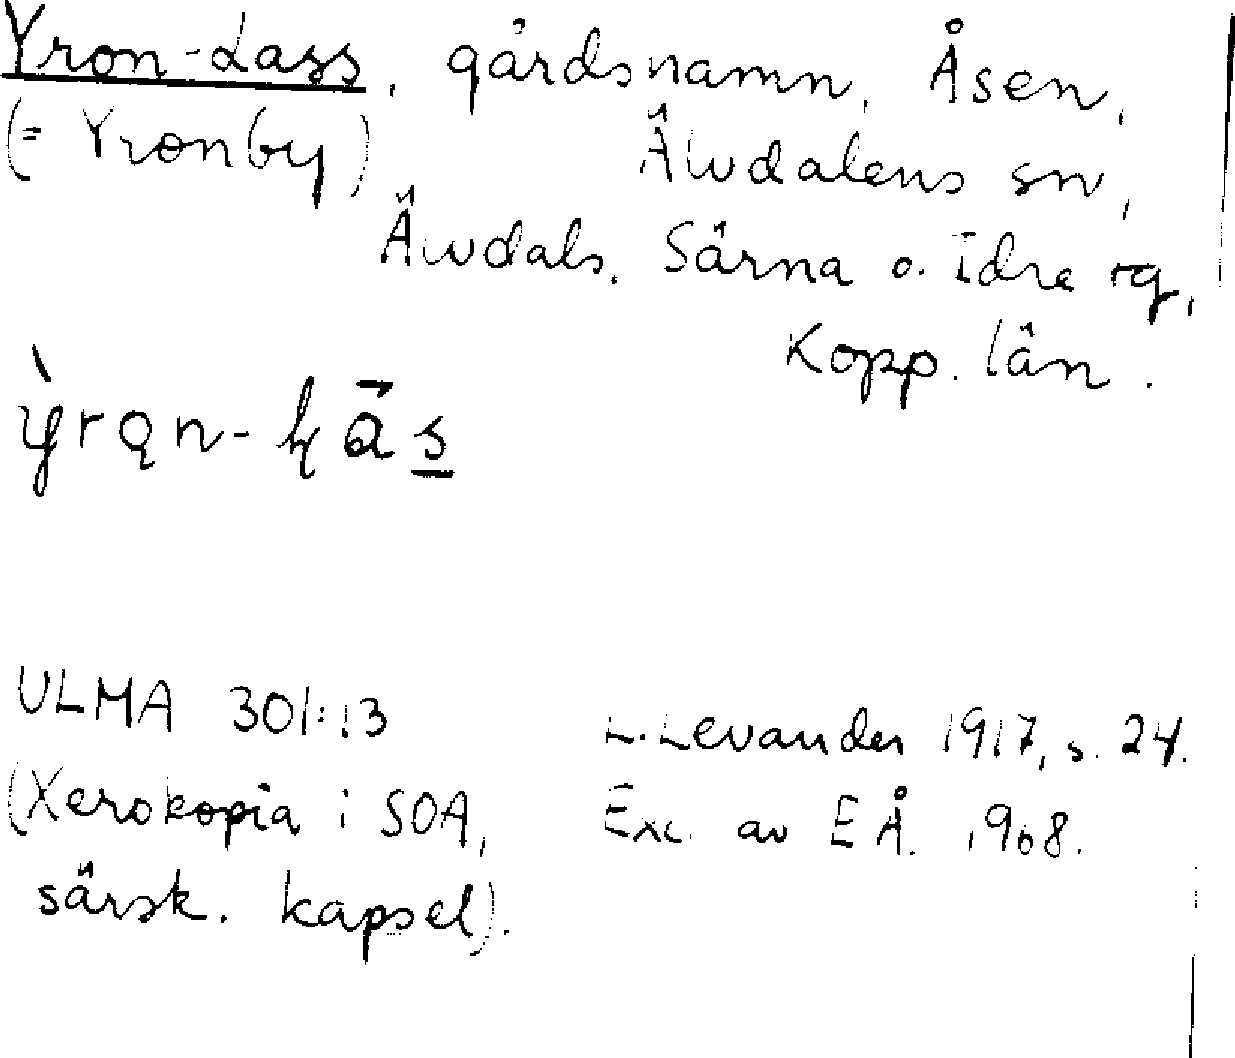 Yron-Lass, gårdsnamn, Åsen,
(= Yronby) Älvdalens sn,
Älvdals, Särna o. Idre tg,
Kopp. län.
ULMA 301:13 L. Levander 1917, s. 24.
(Xerokopia i SOA, Exc. av EÅ. 1968.
särsk. kapsel).